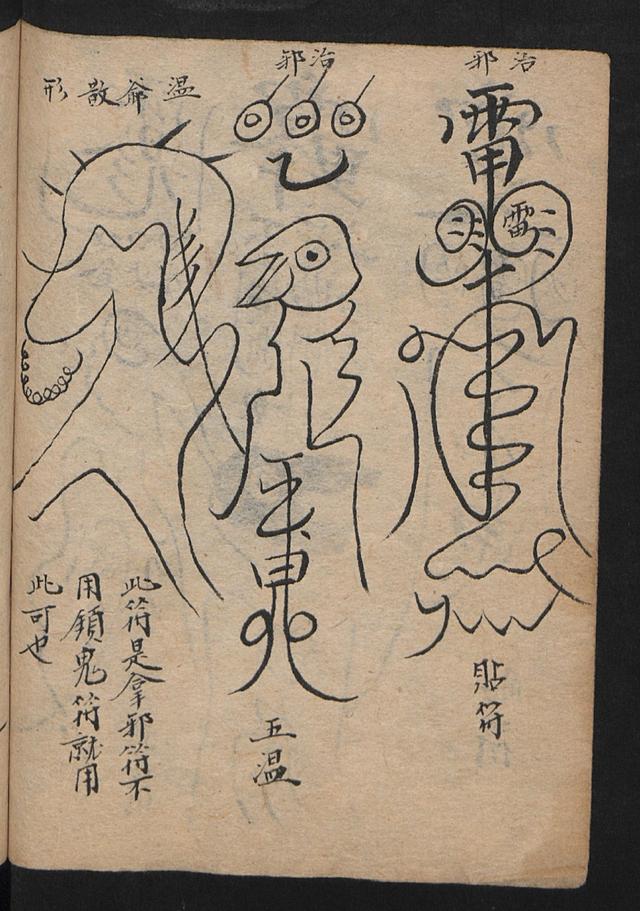 治邪
雷
雷
貼符
治邪
五温
温爺散形
此符是拿邪符不
用鎖鬼符就用
此可也